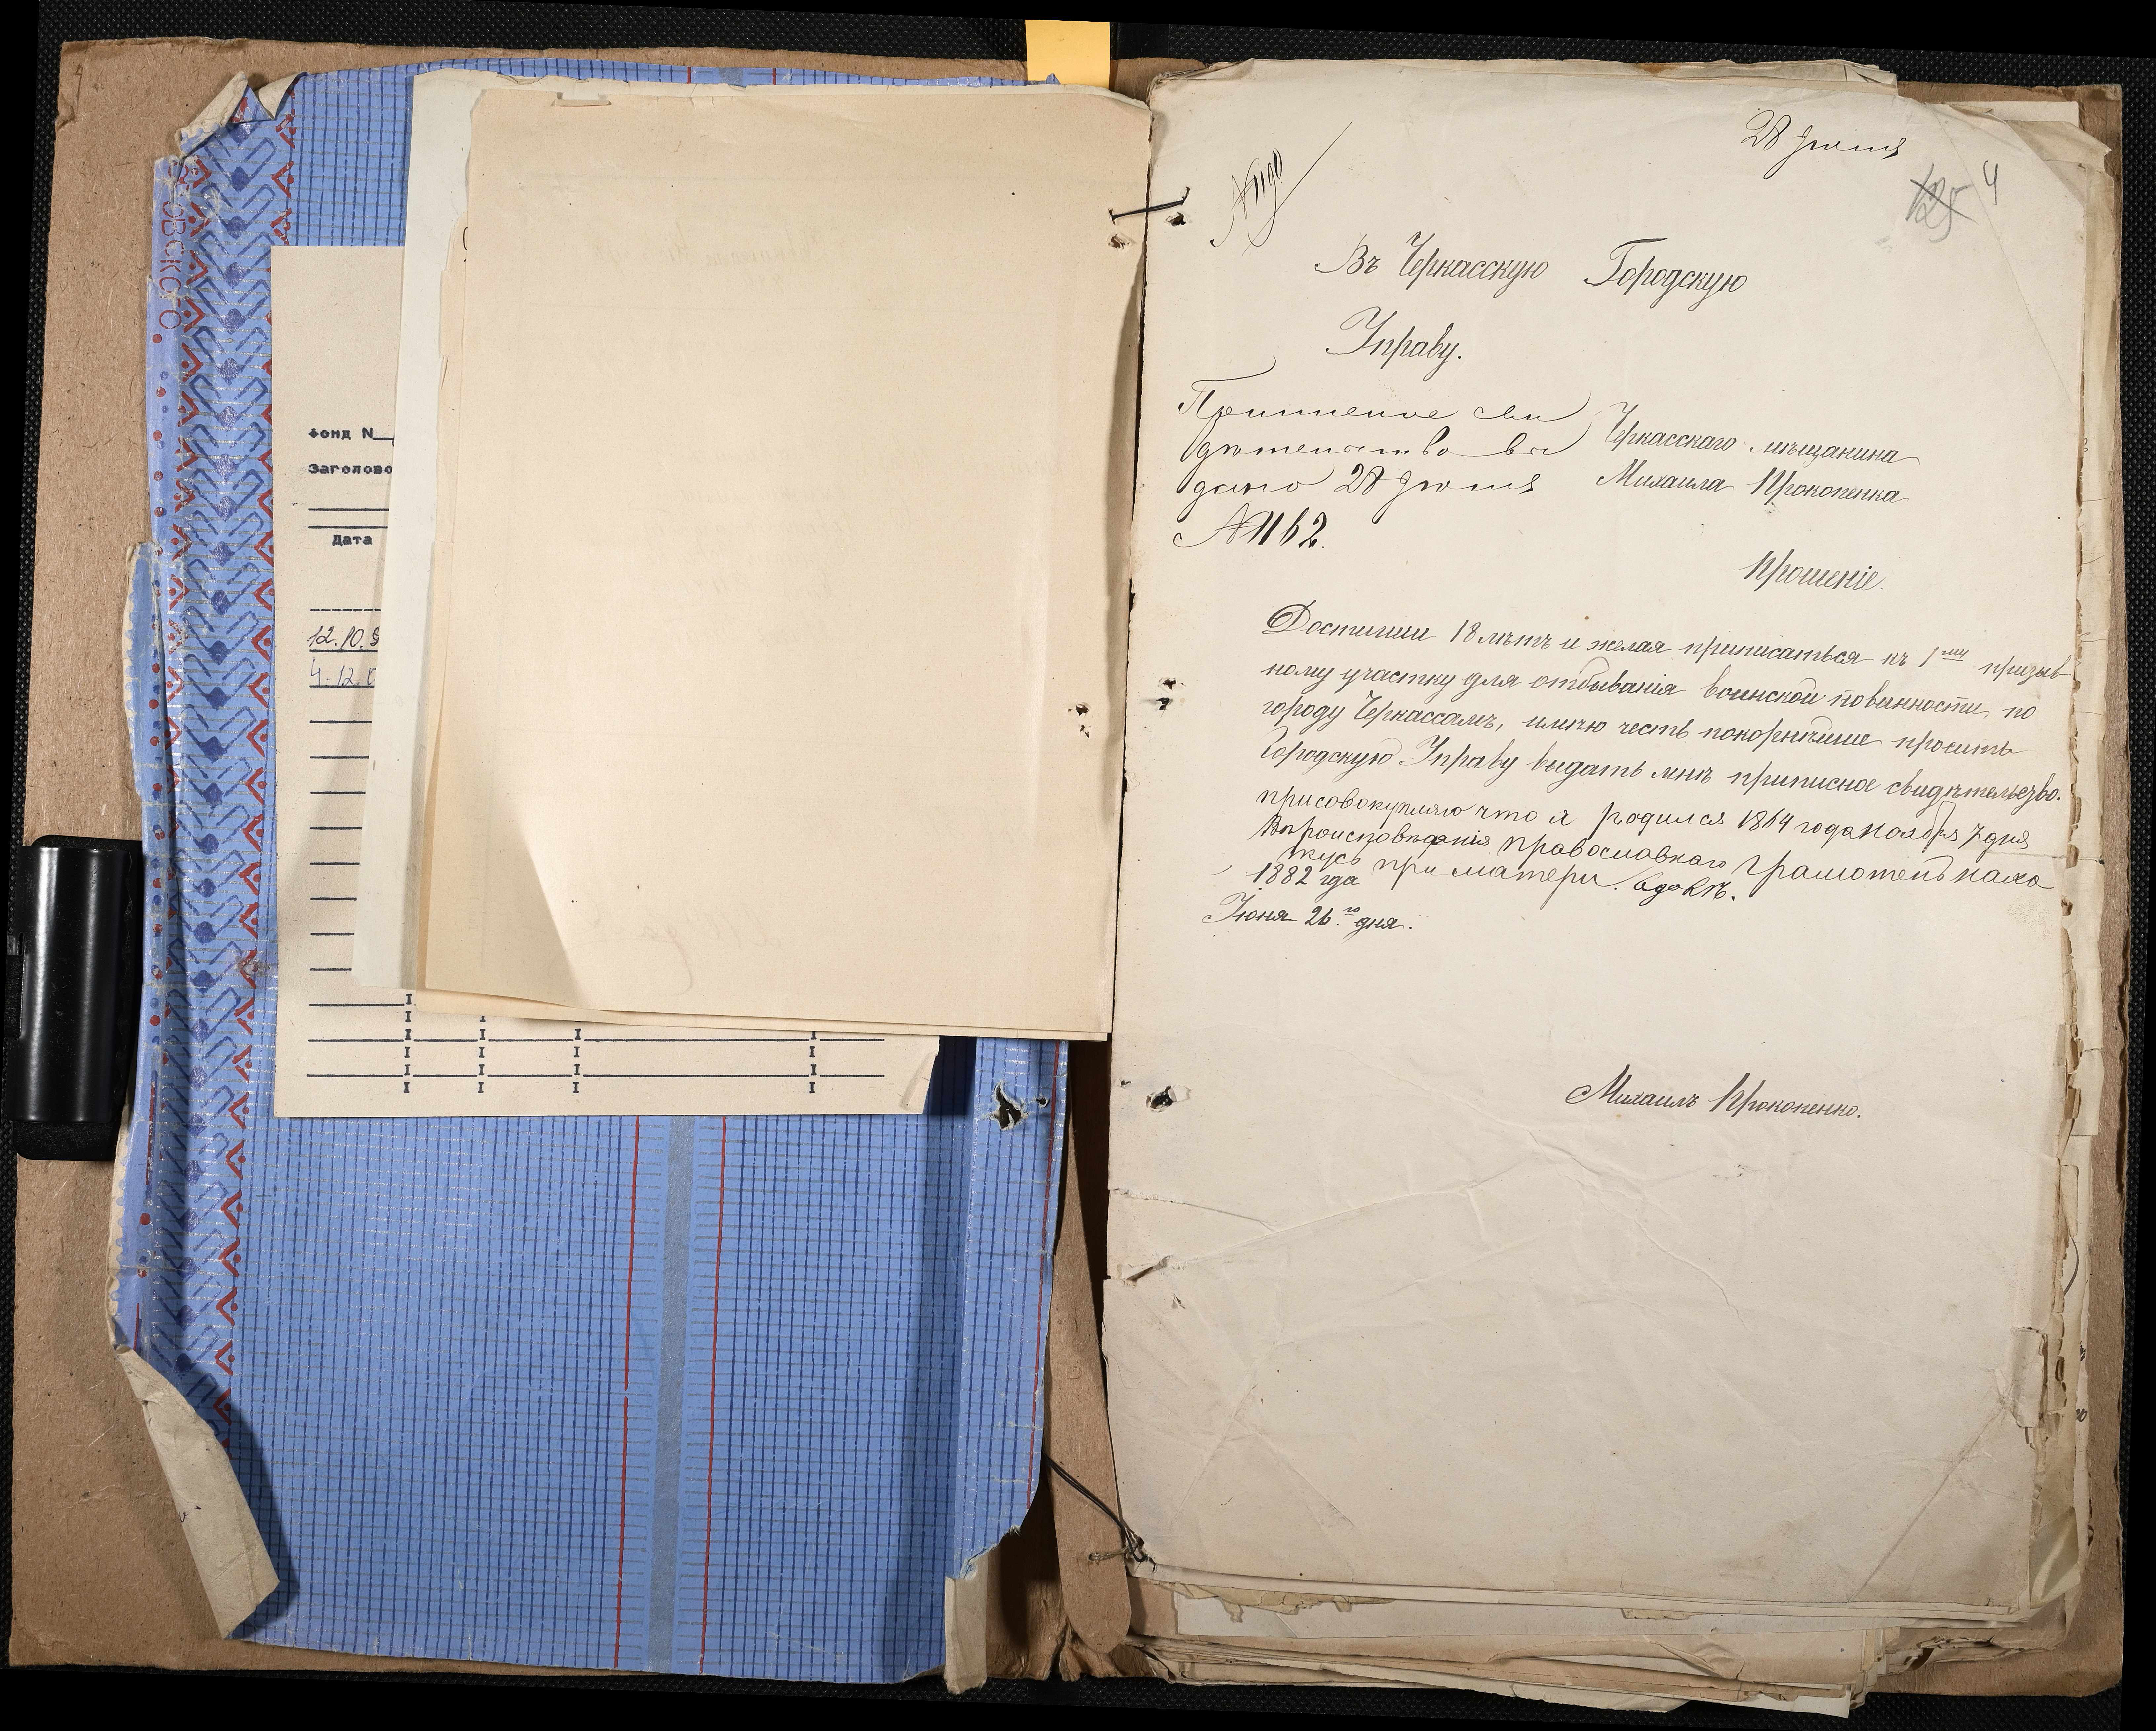 ОВСКОГО
Фонд N
Заголово
Дата
12.10.9
4.12.0
28 Іюня
№1190
125 4
Въ Черкасскую Городскую
Управу.
Приписное сви
дѣтельство вы
дано 28 Іюня
№1162.
Черкасскаго мѣщанина
Михаила Прокопенка
Прошеніе.
Достигши 18 лѣтъ и желая приписаться къ 1му призыв-
ному участку для отбыванія воинской повинности по
городу Черкассамъ, имѣю честь покорнѣйше просить
Городскую Управу выдать мнѣ приписное свидѣтельство.
присовокупляю что я родился 1864 года ноября 7 дня
Вѣроисповѣданія православнаго грамотенъ нахо
жусь при матери вдовѣ.
1882 года
Іюня 26го дня.
Михаилъ Прокопенко.